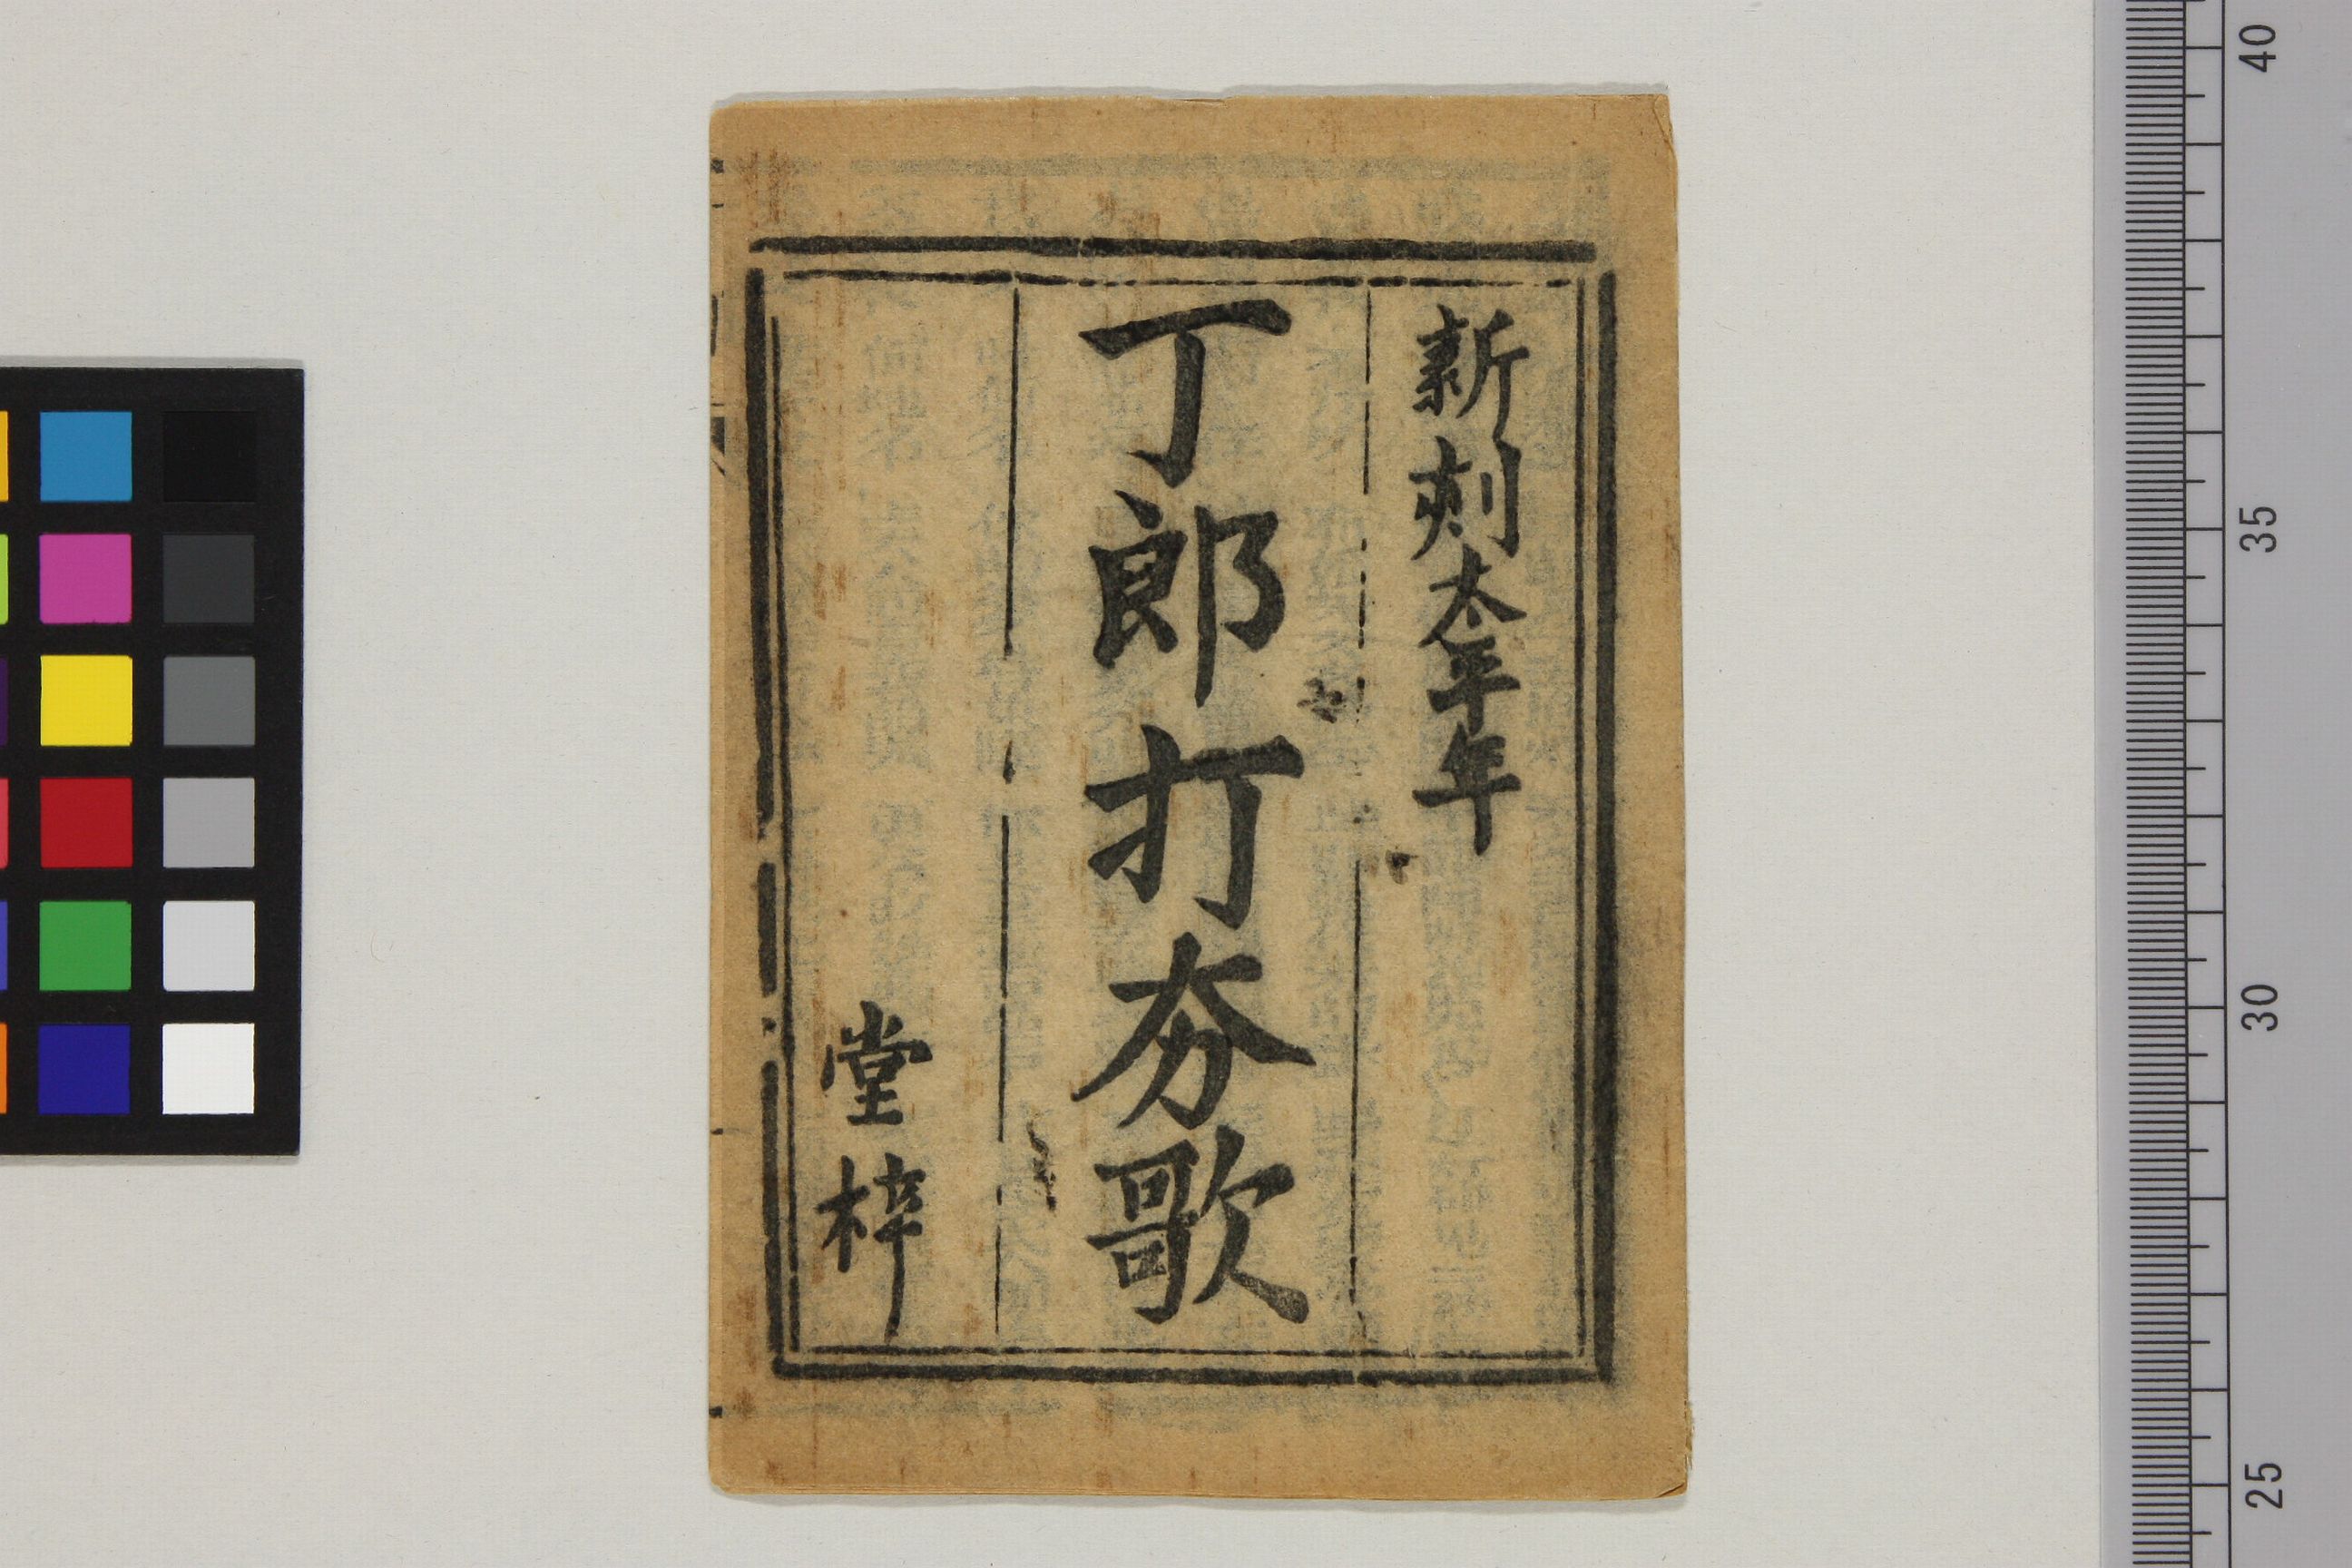 新刻太平年
丁郎打夯歌
堂梓
40
35
30
25